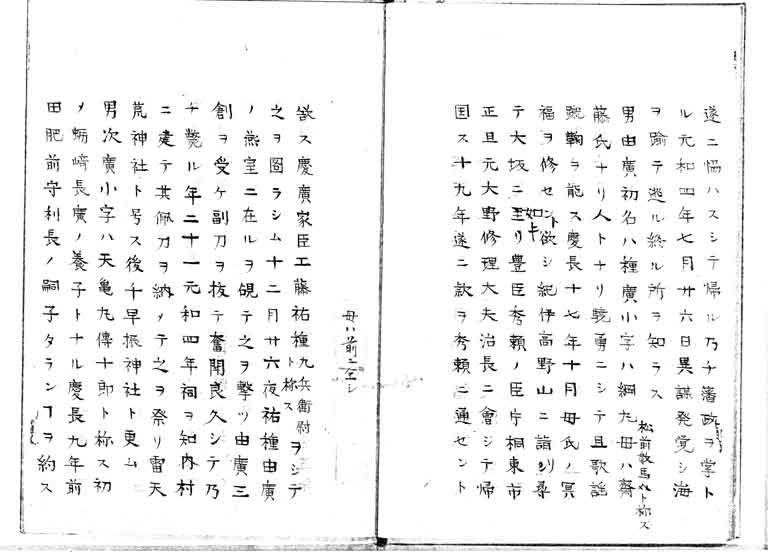 遂ニ悩ハスシテ帰ル乃チ藩政ヲ掌ト
ル元和四年七月廿六日異謀発覚シ海
ヲ踰テ逃ル終ル所ヲ知ラス
松前数馬介ト称ス
男由廣初名ハ種廣小字ハ綱丸母ハ齋
藤氏ナリ人トナリ驍勇ニシテ且歌謡
蹴鞠ヲ能ス慶長十七年十月母氏ノ冥
福ヲ修セント欲シ紀伊高野山ニ詣リ尋
テ大坂ニ至リ豊臣秀頼ノ臣片桐東市
正且元大野修理大夫治長ニ會シテ帰
国ス十九年遂ニ款ヲ秀頼ニ通セント
母ハ前ニ全シ
欲ス慶廣家臣工藤祐種九兵衛尉ト称スヲシテ
之ヲ圖ラシム十二月廿六夜祐種由廣
ノ燕室ニ在ルヲ硯テ之ヲ撃ツ由廣三
創ヲ受ケ副刀ヲ抜テ奮閗良久シテ乃
チ斃ル年二十一元和四年祠ヲ知内村
ニ建テ其佩刀ヲ納メテ之ヲ祭リ雷天
荒神社ト号ス後千早振神社ト更ム
男次廣小字ハ天亀丸傳十郎ト称ス初
メ蛎﨑長廣ノ養子トナル慶長九年前
田肥前守利長ノ嗣子タランヿヲ約ス